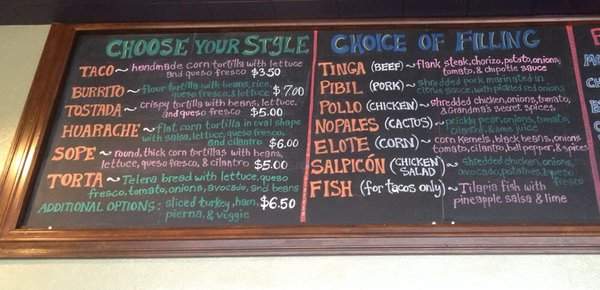 CHOOSE YOUR STYLE
TACO~ handmade corn tortilla with lettuce
and queso fresco $3.50
BURRITO~ flour tortilla with beans, rice,
queso fresco, & lettuce $7.00
TOSTADA~ crispy tortilla with beans, lettuce,
and queso fresco $5.00
HUARACHE~ flat corn tortilla in oval shape
with salsa, lettuce, queso fresco,
and cilantro $6.00
SOPE~ round, thick corn tortillas with beans,
lettuce, queso fresco, & cilantro $5.00
TORTA~ Telera bread with lettuce, queso
fresco, tomato, onions, avocado, and beans
ADDITIONAL OPTIONS: sliced turkey, ham, $6.50
pierna, & veggie
CHOICE OF FILLING
TINGA (BEEF)~ flank steak, chorizo, potato, onions,
tomato, & chipotle sauce
PIBIL (PORK)~ shredded pork marinated in
citrus sauce, with pickled red onions
POLLO (CHICKEN)~ shredded chicken, onions, tomato,
& Grandma's secret spices
NOPALES (CACTUS)~ prickly pear, onions, tomato,
& spices
ELOTE (CORN)~ corn kernels, black beans, onions
tomato, cilantro, bell pepper, & spices
SALPICÓN (CHICKEN SALAD)~ shredded chicken, onions,
avocado, potatoes, & queso
fresco
FISH (for tacos only)~ Tilapia fish with
pineapple salsa & lime